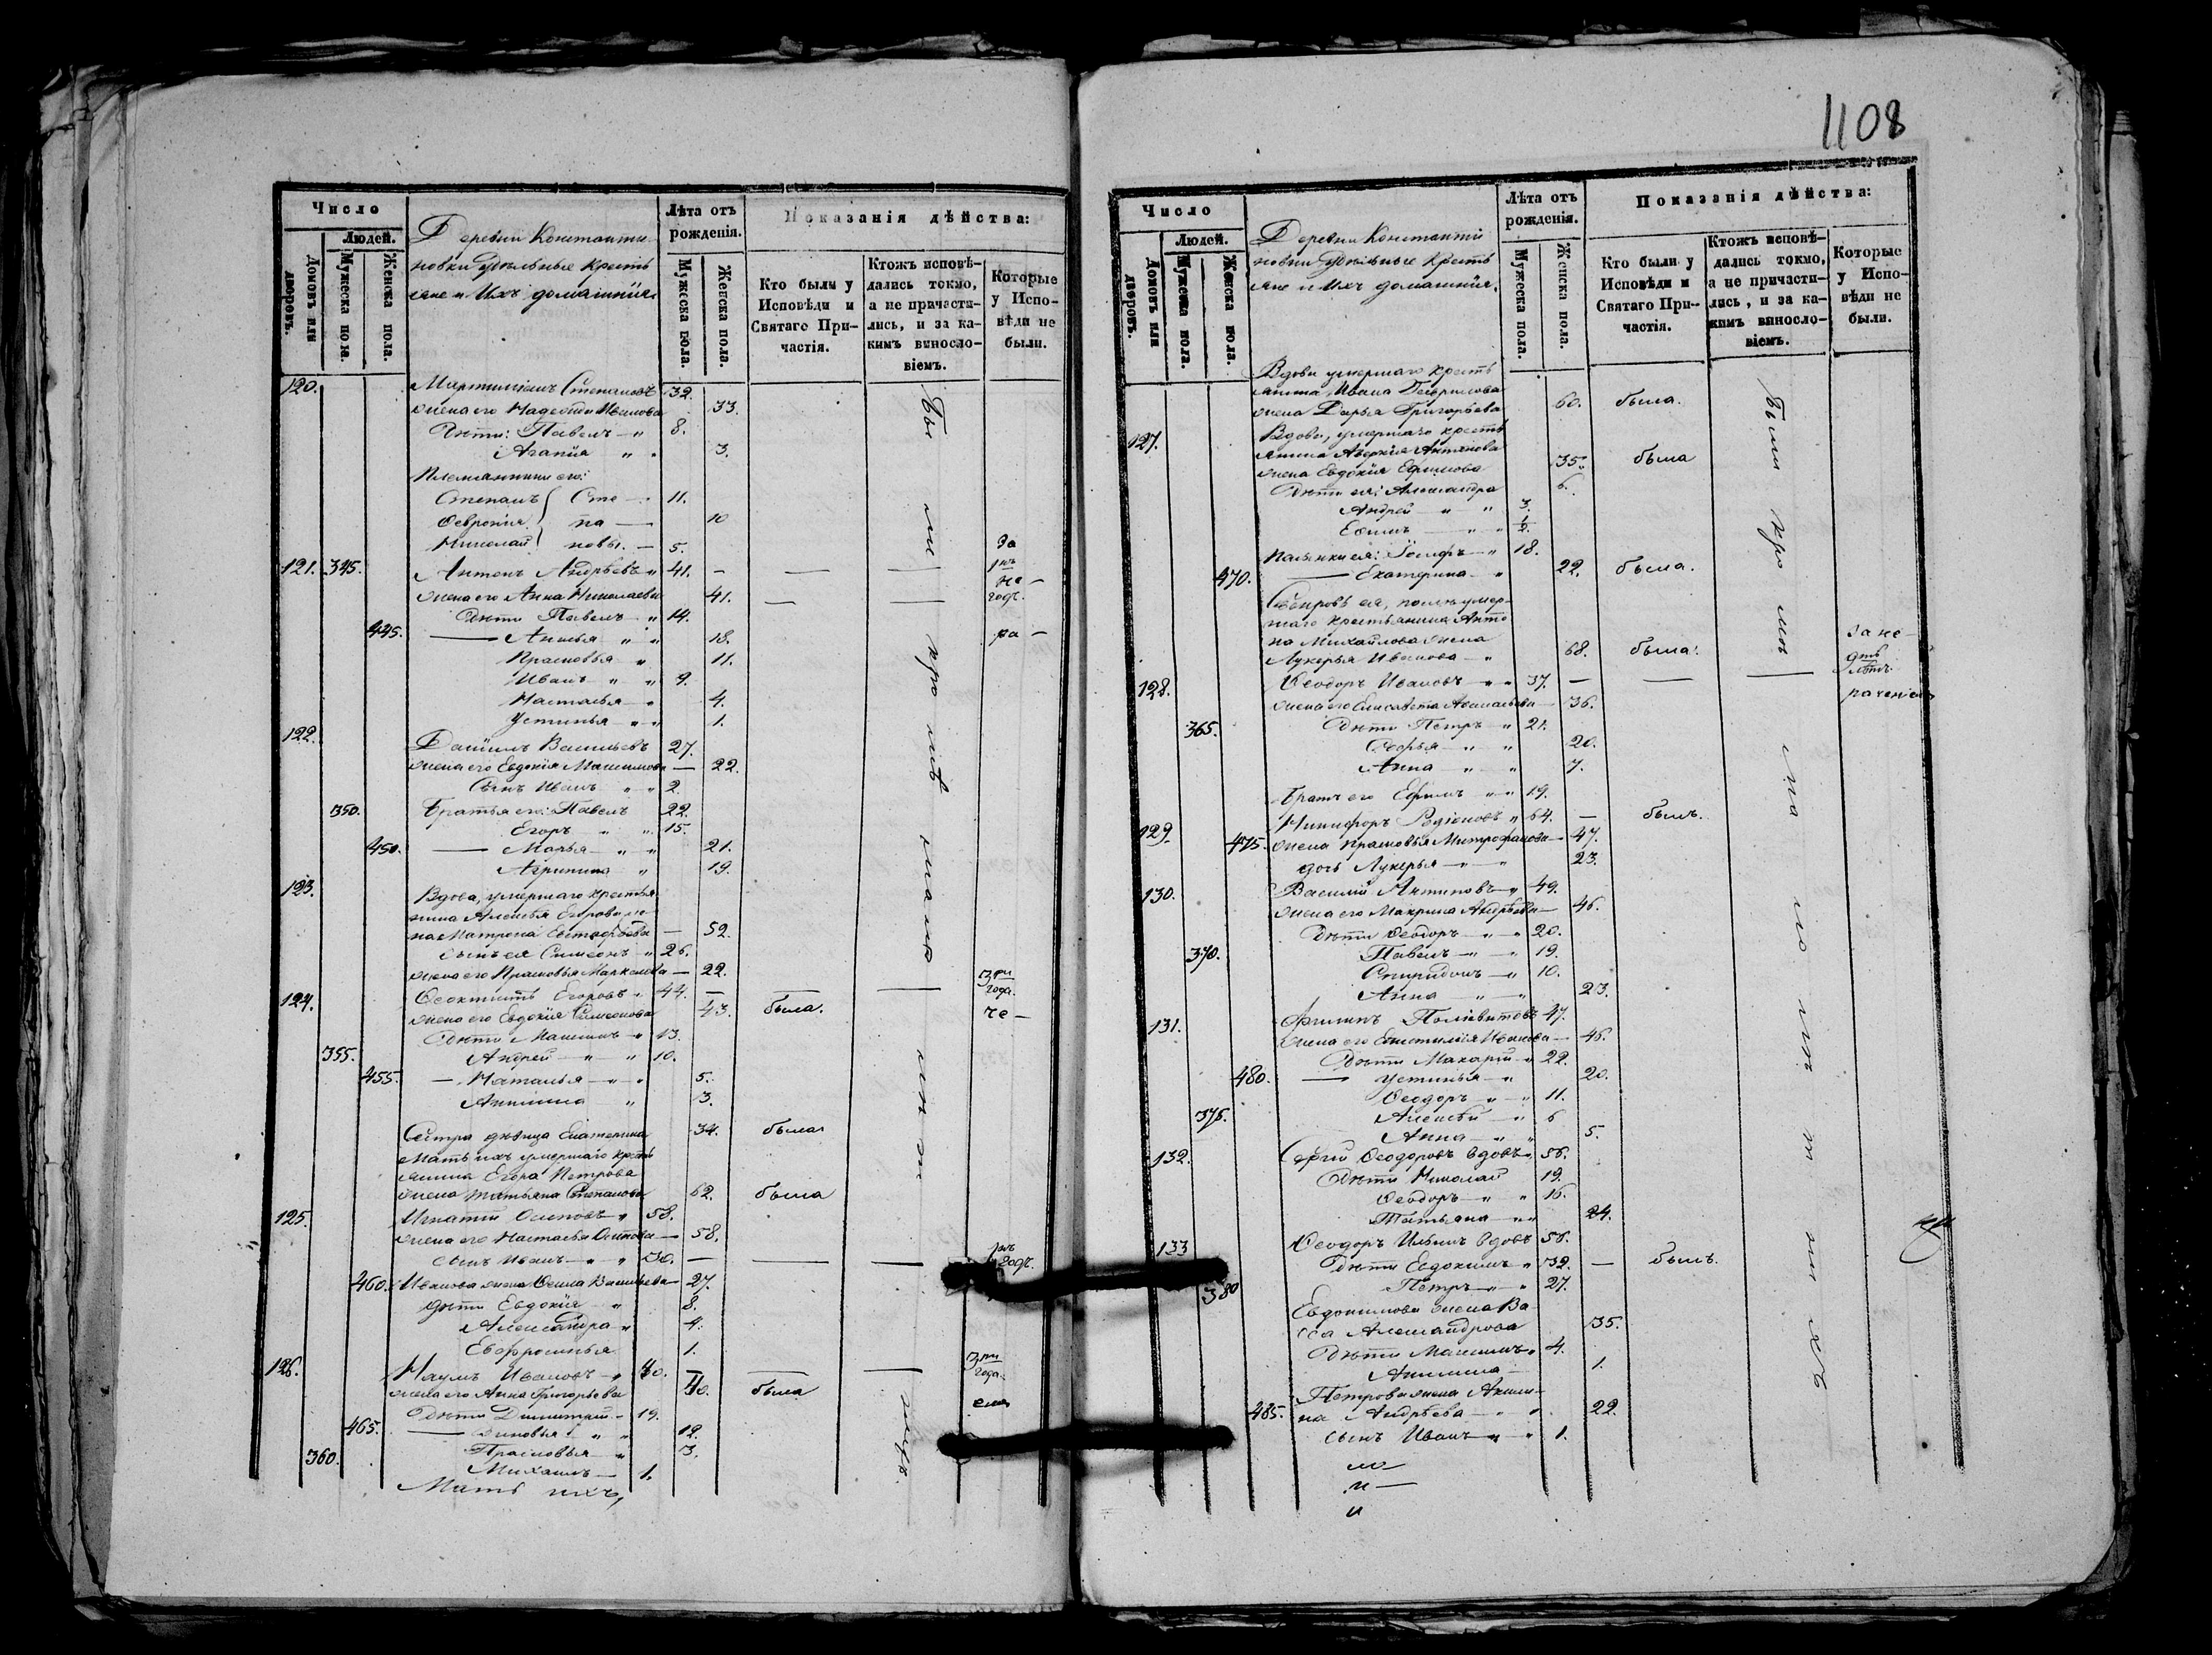 1108
Число
Людей.
Домовъ или дворовъ.
Мужеска пола.
Женска пола.
Деревни Константи
новки удѣльные кресть
яне и ихъ домашнія.
Лѣта отъ рожденія.
Мужеска пола.
Женска пола.
Показанія дѣйства:
Кто были у Исповѣди и Святаго При-частія.
Ктожъ исповѣ-дались токмо, а не причасти-лись, и за ка-кимъ винословіемъ.
Которые у Испо-вѣди не были.
120. Мартиміанъ Степановъ 32.
жена его Надежда Иванова 33.
Дѣти: Павелъ — " 8.
Агапія " " 3.
Племянники его:
Степанъ Сте — 11.
Февронія па — 10
Николай новы. — 5.
За
121. 345. Антонъ Андрѣевъ " 41. — — —
1нъ
не —
жена его Анна Николаева 41. — —
годъ.
Дѣти Павелъ " 14.
445. — Анисья " " 18.
ра —
Прасковья " 11.
Иванъ " " 9.
Настасья " 4.
Устинья " " 1.
122. Даніилъ Васильевъ 27.
жена его Евдокія Максимова — 22.
Сынъ Иванъ " " 2.
350. Братья его: Павелъ 22.
Егоръ " " 15.
450. — Марья " " 21.
Агрипина " 19.
123. Вдова, умершаго крестья
нина Алексѣя Егорова же
на Матрена Евстафьева — 52.
сынъ ея Симеонъ " 26.
жена его Прасковья Маркелова — 22.
124. Феоктистъ Егоровъ " 44. — — —
3ри
года.
жена его Евдокія Симеонова 43. была.
че —
Дѣти Максимъ " 13.
355. Андрей — " " 10.
455. — Наталья — " " 5.
Акилина " 3.
Сестра дѣвица Екатерина 34. была
Мать ихъ умершаго кресть
янина Егора Петрова
жена Татьяна Степанова 62. была
125. Игнатій Осиповъ " 58.
жена его Настасья Осипова — 58.
сынъ Иванъ — " " 30. — — —
1нъ
годъ.
460. Иванова жена Ѳекла Васильева — 27.
дѣти Евдокія " 8.
Александра " 4.
Евфросинья 1.
126. Наумъ Ивановъ — " 40. — — —
3ри
года.
жена его Анна Григорьева 40. была
ніем
Дѣти Димитрій — 19.
465. — Зиновья " " 12.
Прасковья — " 3.
360. Михаилъ — 1.
Мать ихъ,
Число
Людей.
Домовъ или дворовъ.
Мужеска пола.
Женска пола.
Деревни Константи
новки удѣльные кресть
яне и ихъ домашнія.
Лѣта отъ рожденія.
Мужеска пола.
Женска пола.
Показанія дѣйства:
Кто были у Исповѣди и Святаго При-частія.
Ктожъ исповѣ-дались токмо, а не причасти-лись, и за ка-кимъ винословіемъ.
Которые у Испо-вѣди не были.
Вдова умершаго кресть
янина, Ивана Гаврилова
жена Дарья Григорьева 60. была.
127. Вдова, умершаго кресть
янина Аверкія Антонова
жена Евдокія Ефимова 35. была
Дѣти ея: Александра 6.
Андрей " " 3.
Ефимъ — " " 1/2.
Іосифъ — " 18.
470. — Екатерина — " 22. была.
Свекровь ея, послѣ умер
шаго крестьянина Анто
на Михайлова жена
Лукерья Иванова — " 68. была.
за не —
128. Ѳеодоръ Ивановъ — " " 37. — — —
лѣтъ.
жена его Елисавета Аѳанасьева — 36.
раченіе
365. Дѣти Петръ — " 21.
Софья — " " 20.
Анна — " " 7.
Братъ его Ефимъ " " 19.
129. Никифоръ Родіоновъ " 64. — былъ.
475. жена Прасковья Митрофанова — 47.
дочь Лукерья — " " 23.
130. Василій Антиповъ " 49.
жена его Макрина Андрѣева — 46.
Дѣти Ѳеодоръ — " " 20.
370. Павелъ — " " 19.
Спиридонъ — " 10.
Анна — " " 23.
131. Филипъ Поліевктовъ 47.
жена его Епистимія Иванова — 46.
Дѣти Макарій " 22.
480. — Устинья — " 20.
Ѳеодоръ — " " 11.
375. Алексѣй — " 6
Анна — " " 5.
132. Сергій Ѳеодоровъ вдовъ " 56.
Дѣти Николай 19.
Ѳеодоръ — " " 16.
Татьяна — " " 24.
133 Ѳеодоръ Ильинъ вдовъ 58.
Дѣти Евдокимъ — " 32. — былъ.
380 Петръ — " " 27.
Евдокимова жена Ва
са Александрова 35.
Дѣти Максимъ " 4.
Акилина — 1.
Петрова жена Акили
485. на Андрѣева — " " 22.
сынъ Иванъ " " 1.